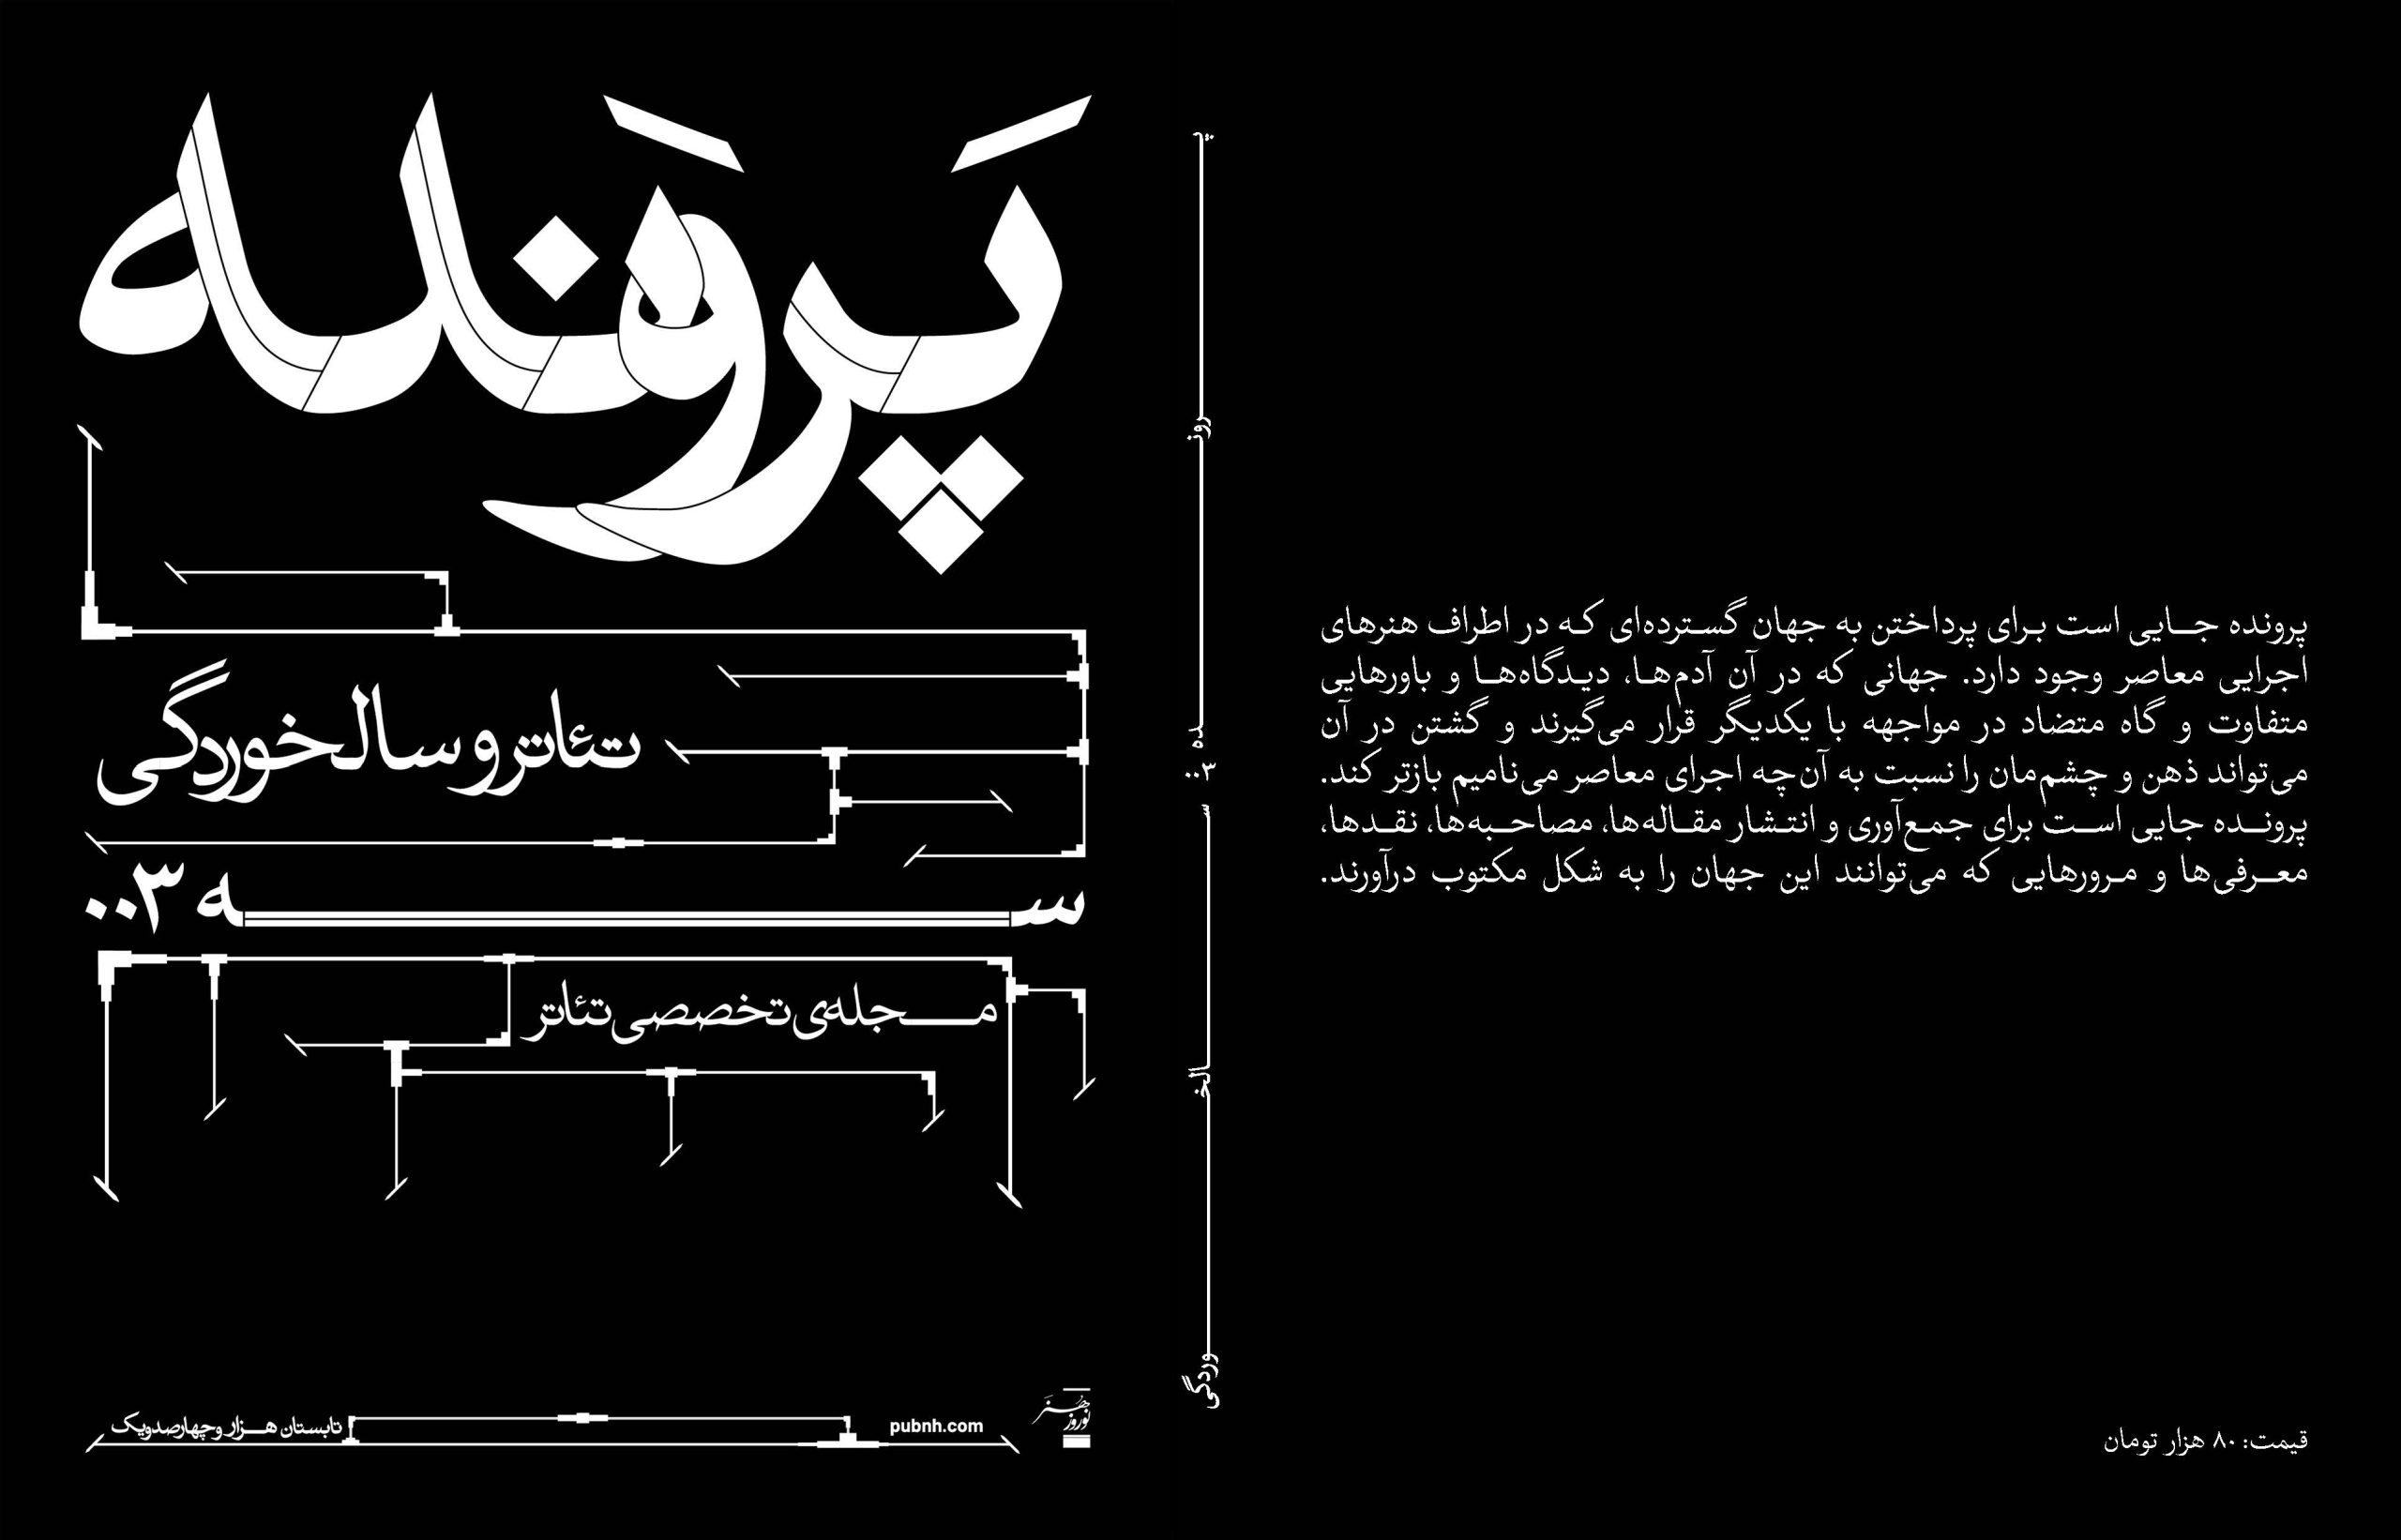 پَروَنده
تئاتر و سالخوردگی
سه ۰۰۳
مجله‌ی تخصصی تئاتر
نوروز هنر
pubnh.com
تابستان هزار و چهارصد و یک
پرونده
۰۰۳
سالخوردگی
پرونده جایی است برای پرداختن به جهان گسترده‌ای که در اطراف هنرهای
اجرایی معاصر وجود دارد. جهانی که در آن آدم‌ها، دیدگاه‌ها و باورهایی
متفاوت و گاه متضاد در مواجهه با یکدیگر قرار می‌گیرند و گشتن در آن
می‌تواند ذهن و چشم‌مان را نسبت به آن‌چه اجرای معاصر می‌نامیم بازتر کند.
پرونده جایی است برای جمع‌آوری و انتشار مقاله‌ها، مصاحبه‌ها، نقدها،
معرفی‌ها و مرورهایی که می‌توانند این جهان را به شکل مکتوب درآورند.
قیمت: ۸۰ هزار تومان